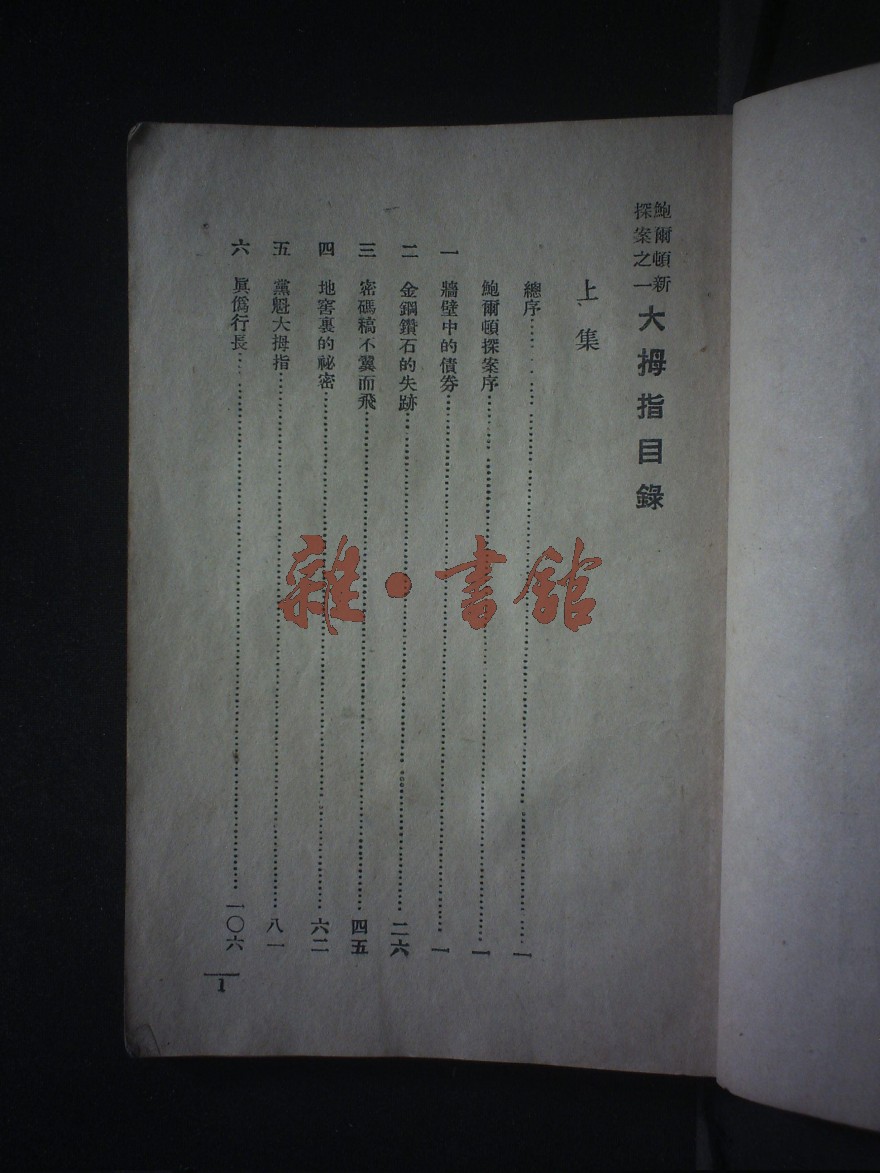 鮑爾頓新
探案之一
大拇指目錄
上集
總序……一
鮑爾頓探案序……一
一 牆壁中的債券……一
二 金鋼鑽石的失跡……二六
三 密碼稿不翼而飛……四五
四 地窖裏的祕密……六二
五 黨魁大拇指……八一
六 眞僞行長……一〇六
1
雜·書館